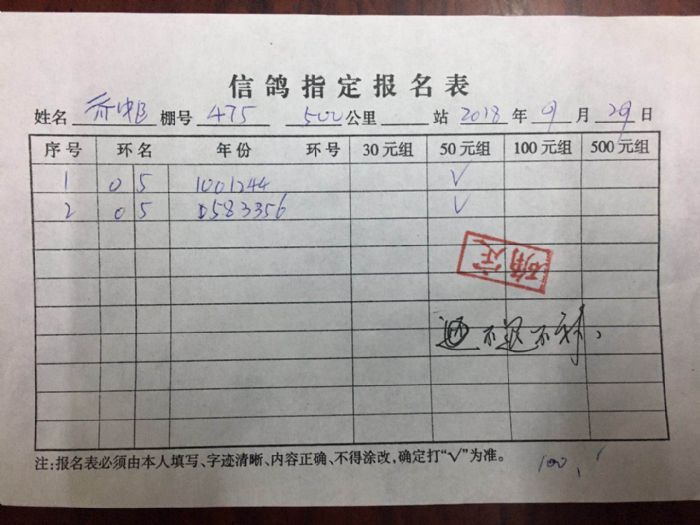 信鸽指定报名表
姓名 乔中巨 棚号 475 500公里 站 2018 年 9 月 29 日
序号 环名 年份 环号 30元组 50元组 100元组 500元组
1 05 1001244 √
2 05 0583356 √
确定
不退不补
注:报名表必须由本人填写、字迹清晰、内容正确、不得涂改,确定打“√”为准。
100